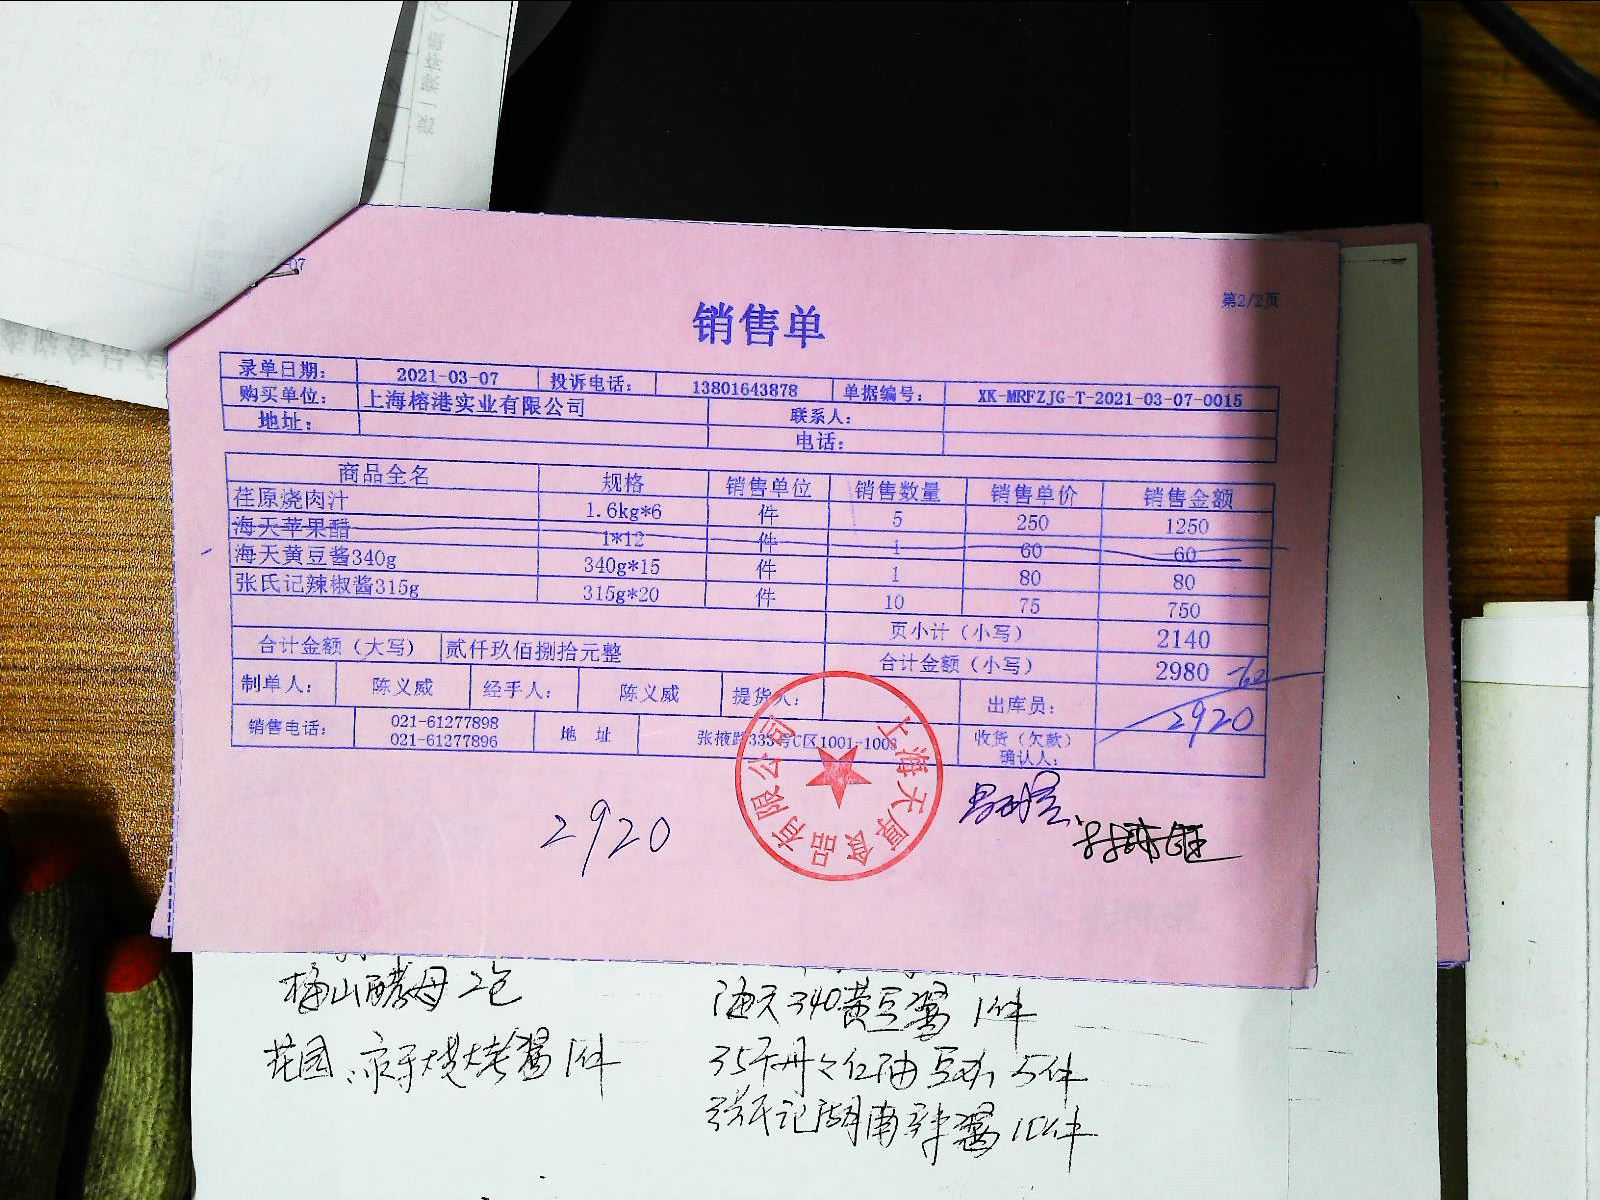 -07
第2/2页
销售单
录单日期： 2021-03-07 投诉电话： 13801643878 单据编号： XK-MRFZJG-T-2021-03-07-0015
购买单位： 上海榕港实业有限公司 联系人：
地址： 电话：
商品全名 规格 销售单位 销售数量 销售单价 销售金额
荏原烧肉汁 1.6kg*6 件 5 250 1250
海天苹果醋 1*12 件 1 60 60
海天黄豆酱340g 340g*15 件 1 80 80
张氏记辣椒酱315g 315g*20 件 10 75 750
页小计（小写） 2140
合计金额（大写） 贰仟玖佰捌拾元整 合计金额（小写） 2980
制单人： 陈义威 经手人： 陈义威 提货人： 出库员： 2920
销售电话： 021-61277898 021-61277896 地 址 张掖路333号C区1001-1003 收货（欠款）确认人：
上海天厚食品有限公司
2920
酵母2包 海天340黄豆酱 1件
花园 烧烤酱1件 红油豆 5件
张氏记湖南辣酱10件